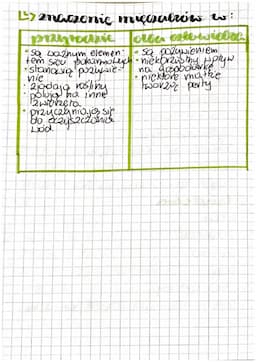 znaczenie mięczaków w:
przyrodzie
dla człowieka
• są ważnym elemen-
tem sieci pokarmowych
• stanowią pożywie-
nie
• zjadają rośliny
• polują na inne
zwierzęta
• przyczyniają się
do oczyszczania
wód
• są pożywieniem
• niekorzystny wpływ
na gospodarkę
• niektóre małże
tworzą perły